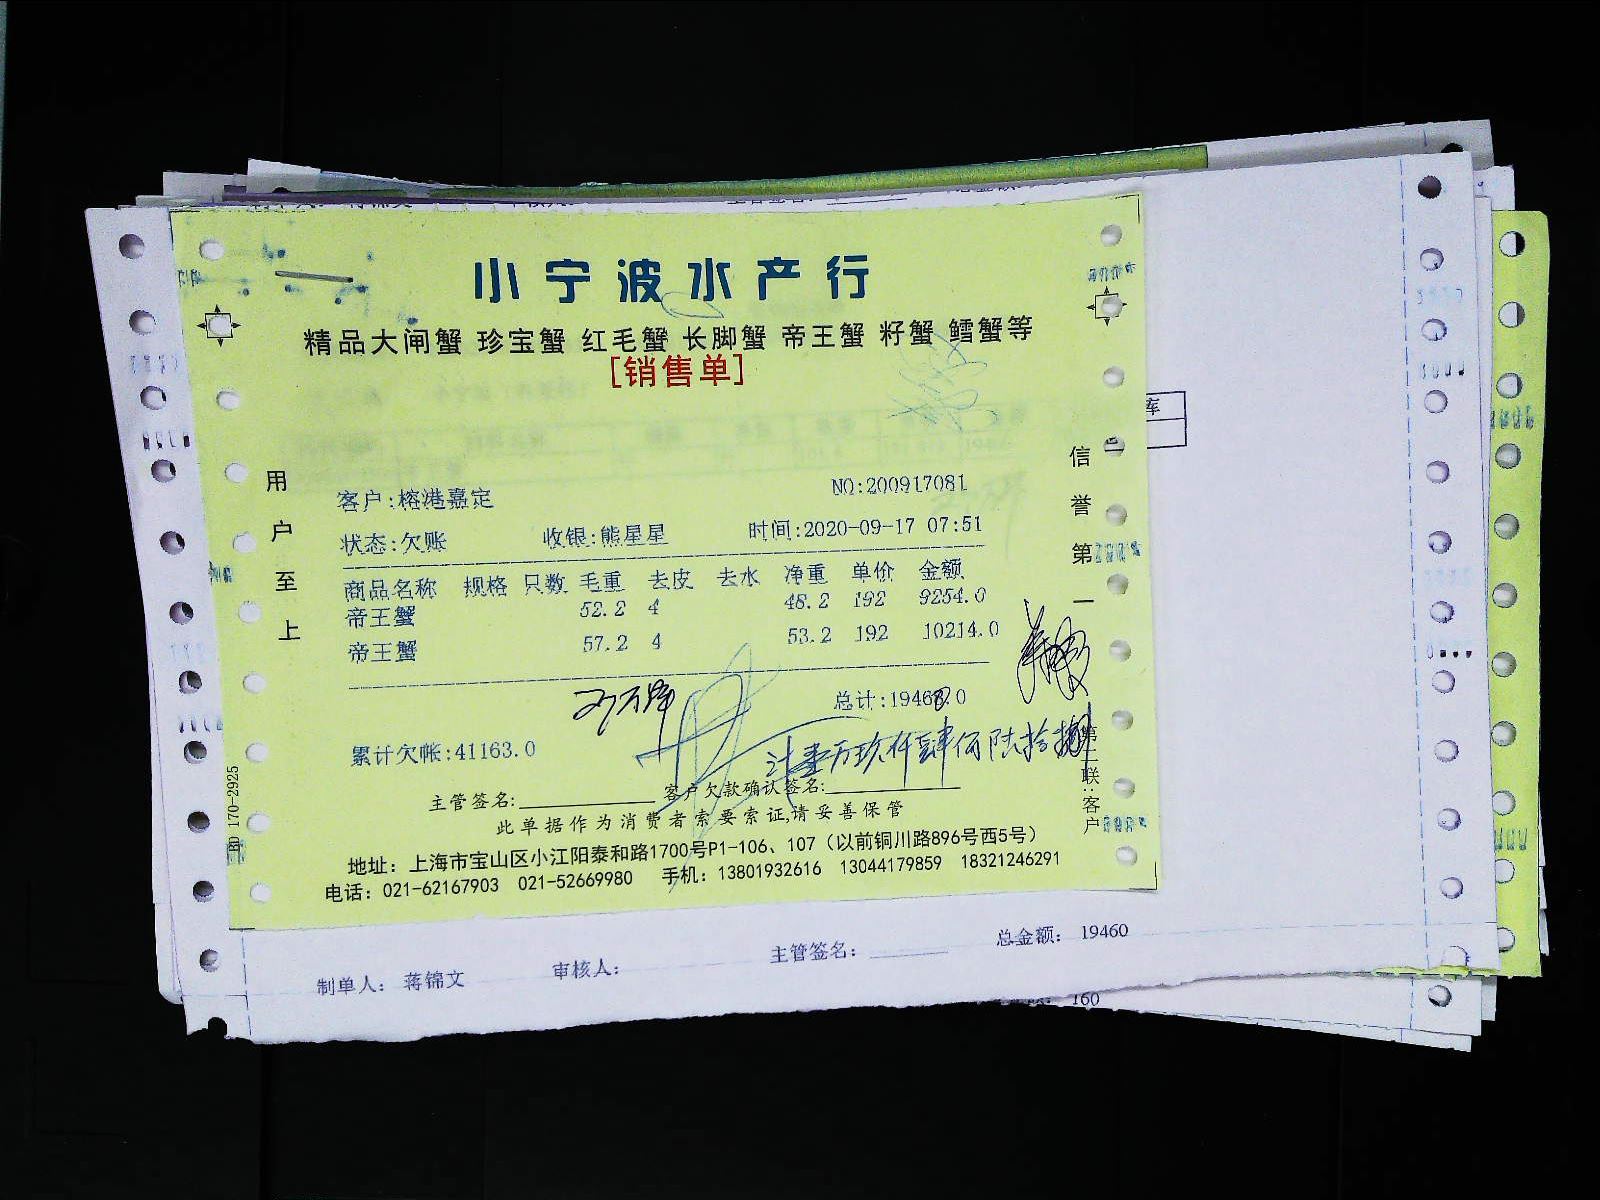 小宁波水产行
精品大闸蟹 珍宝蟹 红毛蟹 长脚蟹 帝王蟹 籽蟹 鳕蟹等
[销售单]
用户至上
信誉第一
客户:榕港嘉定 NO:200917081
状态:欠账 收银:熊星星 时间:2020-09-17 07:51
商品名称 规格 只数 毛重 去皮 去水 净重 单价 金额
帝王蟹 52.2 4 48.2 192 9254.0
帝王蟹 57.2 4 53.2 192 10214.0
总计:19468.0
累计欠帐:41163.0
计壹万玖仟肆佰陆拾
第二联:客户
主管签名: 客户欠款确认签名:
此单据作为消费者索要索证,请妥善保管
地址：上海市宝山区小江阳泰和路1700号P1-106、107（以前铜川路896号西5号）
电话：021-62167903 021-52669980 手机：13801932616 13044179859 18321246291
170-2925
库
制单人： 蒋锦文 审核人： 主管签名： 总金额： 19460
160